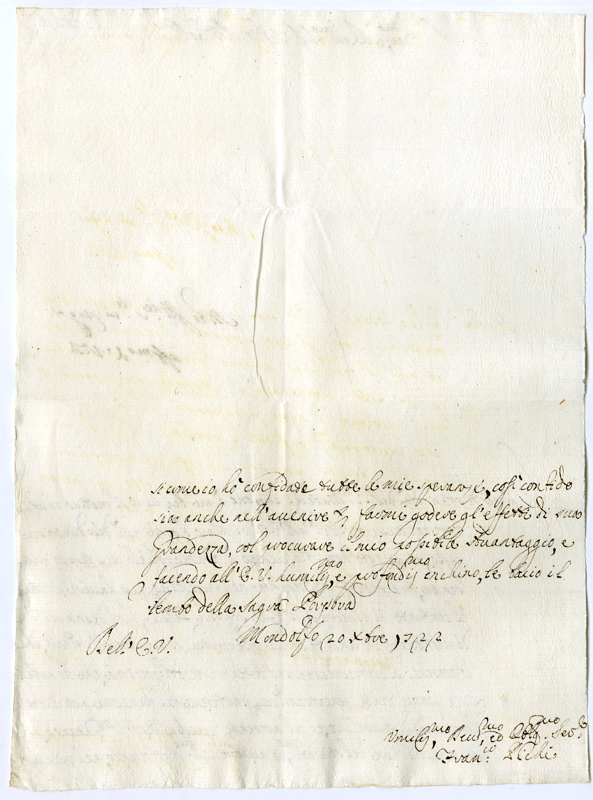 si come io hò confidate tutte le mie speranze, così confido
sino anche nell'avenire di farmi godere gl'effetti di sua
Grandezza, col procurare il mio possibile avantaggio, e
facendo all'E. V. humiliss.mo, e profondiss.mo inchino, le bacio il
lembo della Sagra Porpora
Dell' E. V. Mondolfo 20 Xbre 1722
Umiliss.mo, Dev.mo, ed Obblig.mo Ser.e
Fran.co